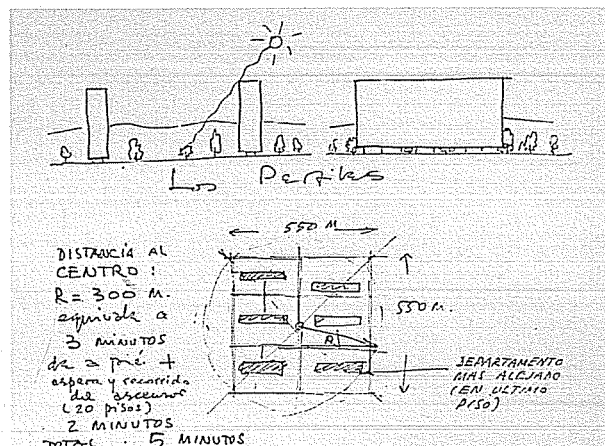 Los Perfiles
550 M
DISTANCIA AL
CENTRO:
R = 300 M.
equivale a
3 MINUTOS
de a pié +
espera y recorrido
de ascensor
(20 pisos)
2 MINUTOS
TOTAL : 5 MINUTOS
550 M.
R
DEPARTAMENTO
MAS ALEJADO
(EN ULTIMO
PISO)